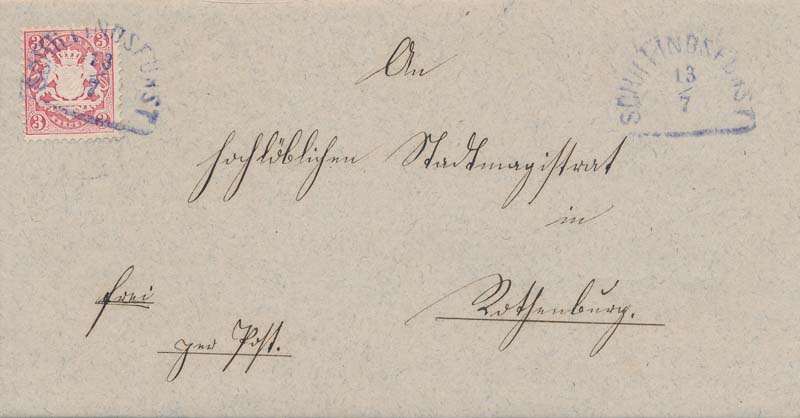 3 3
3 3
SCHILLINGSFÜRST
13
7
SCHILLINGSFÜRST
13
7
An
hochlöblichen Stadtmagistrat
in
Rothenburg.
frei
per Post.